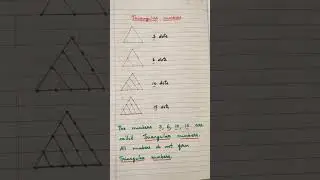 Triangular numbers
3 dots
6 dots
10 dots
15 dots
The numbers 3, 6, 10, 15 are
called Triangular numbers.
All numbers do not form
Triangular numbers.